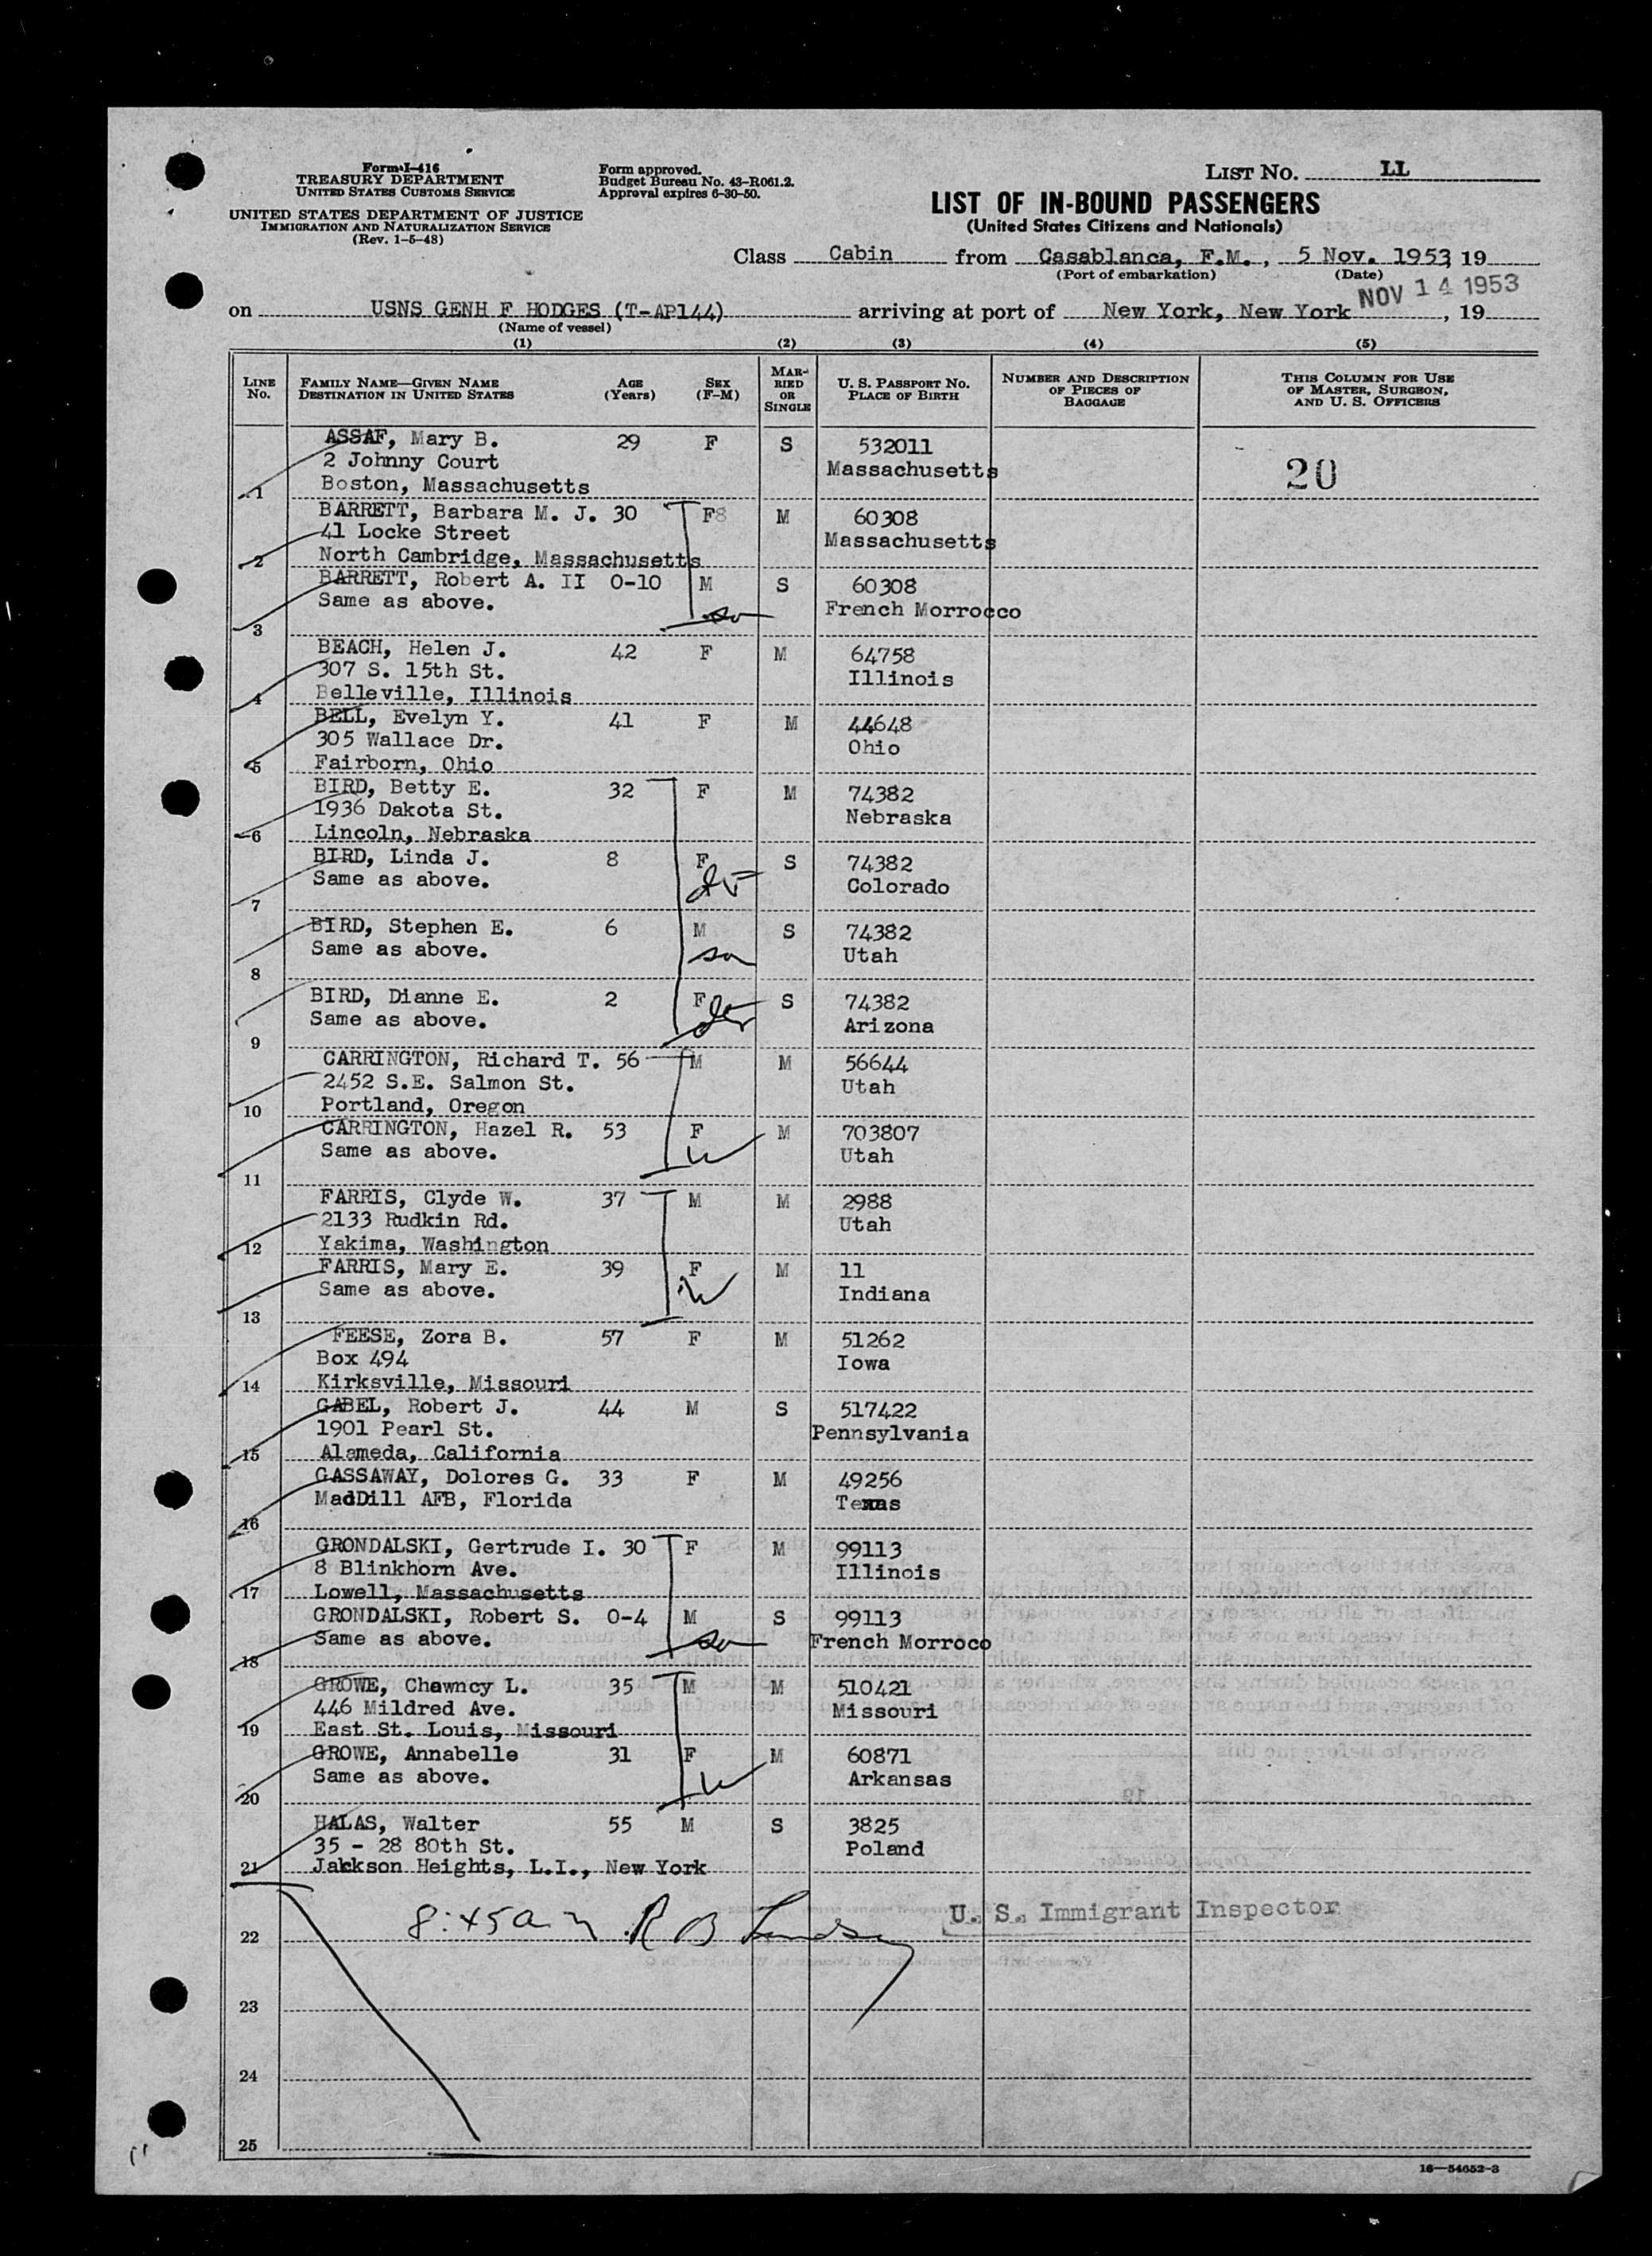 Form I-416
TREASURY DEPARTMENT
UNITED STATES CUSTOMS SERVICE
UNITED STATES DEPARTMENT OF JUSTICE
IMMIGRATION AND NATURALIZATION SERVICE
(Rev. 1-5-48)
Form approved.
Budget Bureau No. 43-R061.2.
Approval expires 6-30-50.
LIST NO. LL
LIST OF IN-BOUND PASSENGERS
(United States Citizens and Nationals)
Class Cabin from Casablanca, F.M., 5 Nov. 1953, 19
(Port of embarkation) (Date)
NOV 14 1953
on USNS GENH F HODGES (T-AP144) arriving at port of New York, New York, 19
(Name of vessel)
(1) (2) (3) (4) (5)
LINE NO. FAMILY NAME—GIVEN NAME DESTINATION IN UNITED STATES AGE (Years) SEX (F-M) MARRIED OR SINGLE U. S. PASSPORT NO. PLACE OF BIRTH NUMBER AND DESCRIPTION OF PIECES OF BAGGAGE THIS COLUMN FOR USE OF MASTER, SURGEON, AND U. S. OFFICERS
ASSAF, Mary B. 29 F S 532011
2 Johnny Court Massachusetts 20
1 Boston, Massachusetts
BARRETT, Barbara M. J. 30 F8 M 60308
41 Locke Street Massachusetts
2 North Cambridge, Massachusetts
BARRETT, Robert A. II 0-10 M S 60308
Same as above. so French Morrocco
3
BEACH, Helen J. 42 F M 64758
307 S. 15th St. Illinois
4 Belleville, Illinois
BELL, Evelyn Y. 41 F M 44648
305 Wallace Dr. Ohio
5 Fairborn, Ohio
BIRD, Betty E. 32 F M 74382
1936 Dakota St. Nebraska
6 Lincoln, Nebraska
BIRD, Linda J. 8 F S 74382
Same as above. Colorado
7
BIRD, Stephen E. 6 M S 74382
Same as above. so Utah
8
BIRD, Dianne E. 2 F S 74382
Same as above. Arizona
9
CARRINGTON, Richard T. 56 M M 56644
2452 S.E. Salmon St. Utah
10 Portland, Oregon
CARRINGTON, Hazel R. 53 F M 703807
Same as above. W Utah
11
FARRIS, Clyde W. 37 M M 2988
2133 Rudkin Rd. Utah
12 Yakima, Washington
FARRIS, Mary E. 39 F M 11
Same as above. W Indiana
13
FEESE, Zora B. 57 F M 51262
Box 494 Iowa
14 Kirksville, Missouri
GABEL, Robert J. 44 M S 517422
1901 Pearl St. Pennsylvania
15 Alameda, California
GASSAWAY, Dolores G. 33 F M 49256
MadDill AFB, Florida Texas
16
GRONDALSKI, Gertrude I. 30 F M 99113
8 Blinkhorn Ave. Illinois
17 Lowell, Massachusetts
GRONDALSKI, Robert S. 0-4 M S 99113
Same as above. so French Morroco
18
GROWE, Chawncy L. 35 M M 510421
446 Mildred Ave. Missouri
19 East St. Louis, Missouri
GROWE, Annabelle 31 F M 60871
Same as above. W Arkansas
20
HALAS, Walter 55 M S 3825
35 - 28 80th St. Poland
21 Jackson Heights, L.I., New York
8:45 am R B Lindsay U. S. Immigrant Inspector
22
23
24
25
16—54652-3